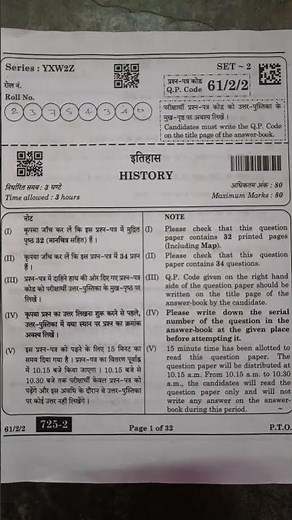 Series : YXW2Z
SET ~ 2
रोल नं.
Roll No.
प्रश्न-पत्र कोड
Q.P. Code 61/2/2
परीक्षार्थी प्रश्न-पत्र कोड को उत्तर-पुस्तिका के
मुख-पृष्ठ पर अवश्य लिखें ।
Candidates must write the Q.P. Code
on the title page of the answer-book.
इतिहास
HISTORY
निर्धारित समय : 3 घण्टे
अधिकतम अंक : 80
Time allowed : 3 hours
Maximum Marks : 80
नोट
(I) कृपया जाँच कर लें कि इस प्रश्न-पत्र में मुद्रित
पृष्ठ 32 (मानचित्र सहित) हैं ।
(II) कृपया जाँच कर लें कि इस प्रश्न-पत्र में 34 प्रश्न
हैं ।
(III) प्रश्न-पत्र में दाहिने हाथ की ओर दिए गए प्रश्न-पत्र
कोड को परीक्षार्थी उत्तर-पुस्तिका के मुख-पृष्ठ पर
लिखें ।
(IV) कृपया प्रश्न का उत्तर लिखना शुरू करने से पहले,
उत्तर-पुस्तिका में यथा स्थान पर प्रश्न का क्रमांक
अवश्य लिखें ।
(V) इस प्रश्न-पत्र को पढ़ने के लिए 15 मिनट का
समय दिया गया है । प्रश्न-पत्र का वितरण पूर्वाह्न
में 10.15 बजे किया जाएगा । 10.15 बजे से
10.30 बजे तक परीक्षार्थी केवल प्रश्न-पत्र को
पढ़ेंगे और इस अवधि के दौरान वे उत्तर-पुस्तिका
पर कोई उत्तर नहीं लिखेंगे ।
NOTE
(I) Please check that this question
paper contains 32 printed pages
(Including Map).
(II) Please check that this question
paper contains 34 questions.
(III) Q.P. Code given on the right hand
side of the question paper should be
written on the title page of the
answer-book by the candidate.
(IV) Please write down the serial
number of the question in the
answer-book at the given place
before attempting it.
(V) 15 minute time has been allotted to
read this question paper. The
question paper will be distributed at
10.15 a.m. From 10.15 a.m. to 10.30
a.m., the candidates will read the
question paper only and will not
write any answer on the answer-
book during this period.
61/2/2
725-2
Page 1 of 32
P.T.O.